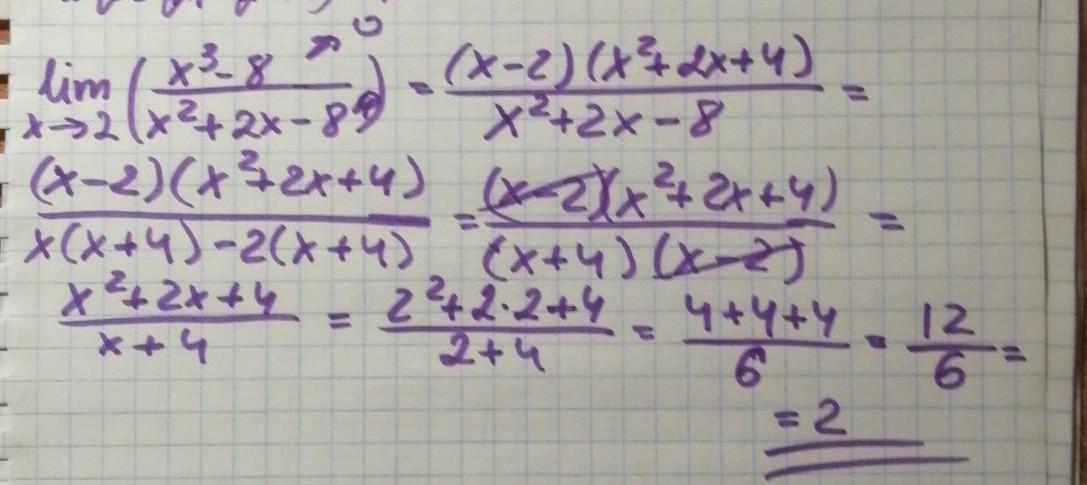 0
lim x→2 ( (x³-8)/(x²+2x-8) ) = ((x-2)(x²+2x+4))/(x²+2x-8) =
((x-2)(x²+2x+4))/(x(x+4)-2(x+4)) = ((x-2)(x²+2x+4))/((x+4)(x-2)) =
(x²+2x+4)/(x+4) = (2²+2·2+4)/(2+4) = (4+4+4)/6 = 12/6 =
= 2